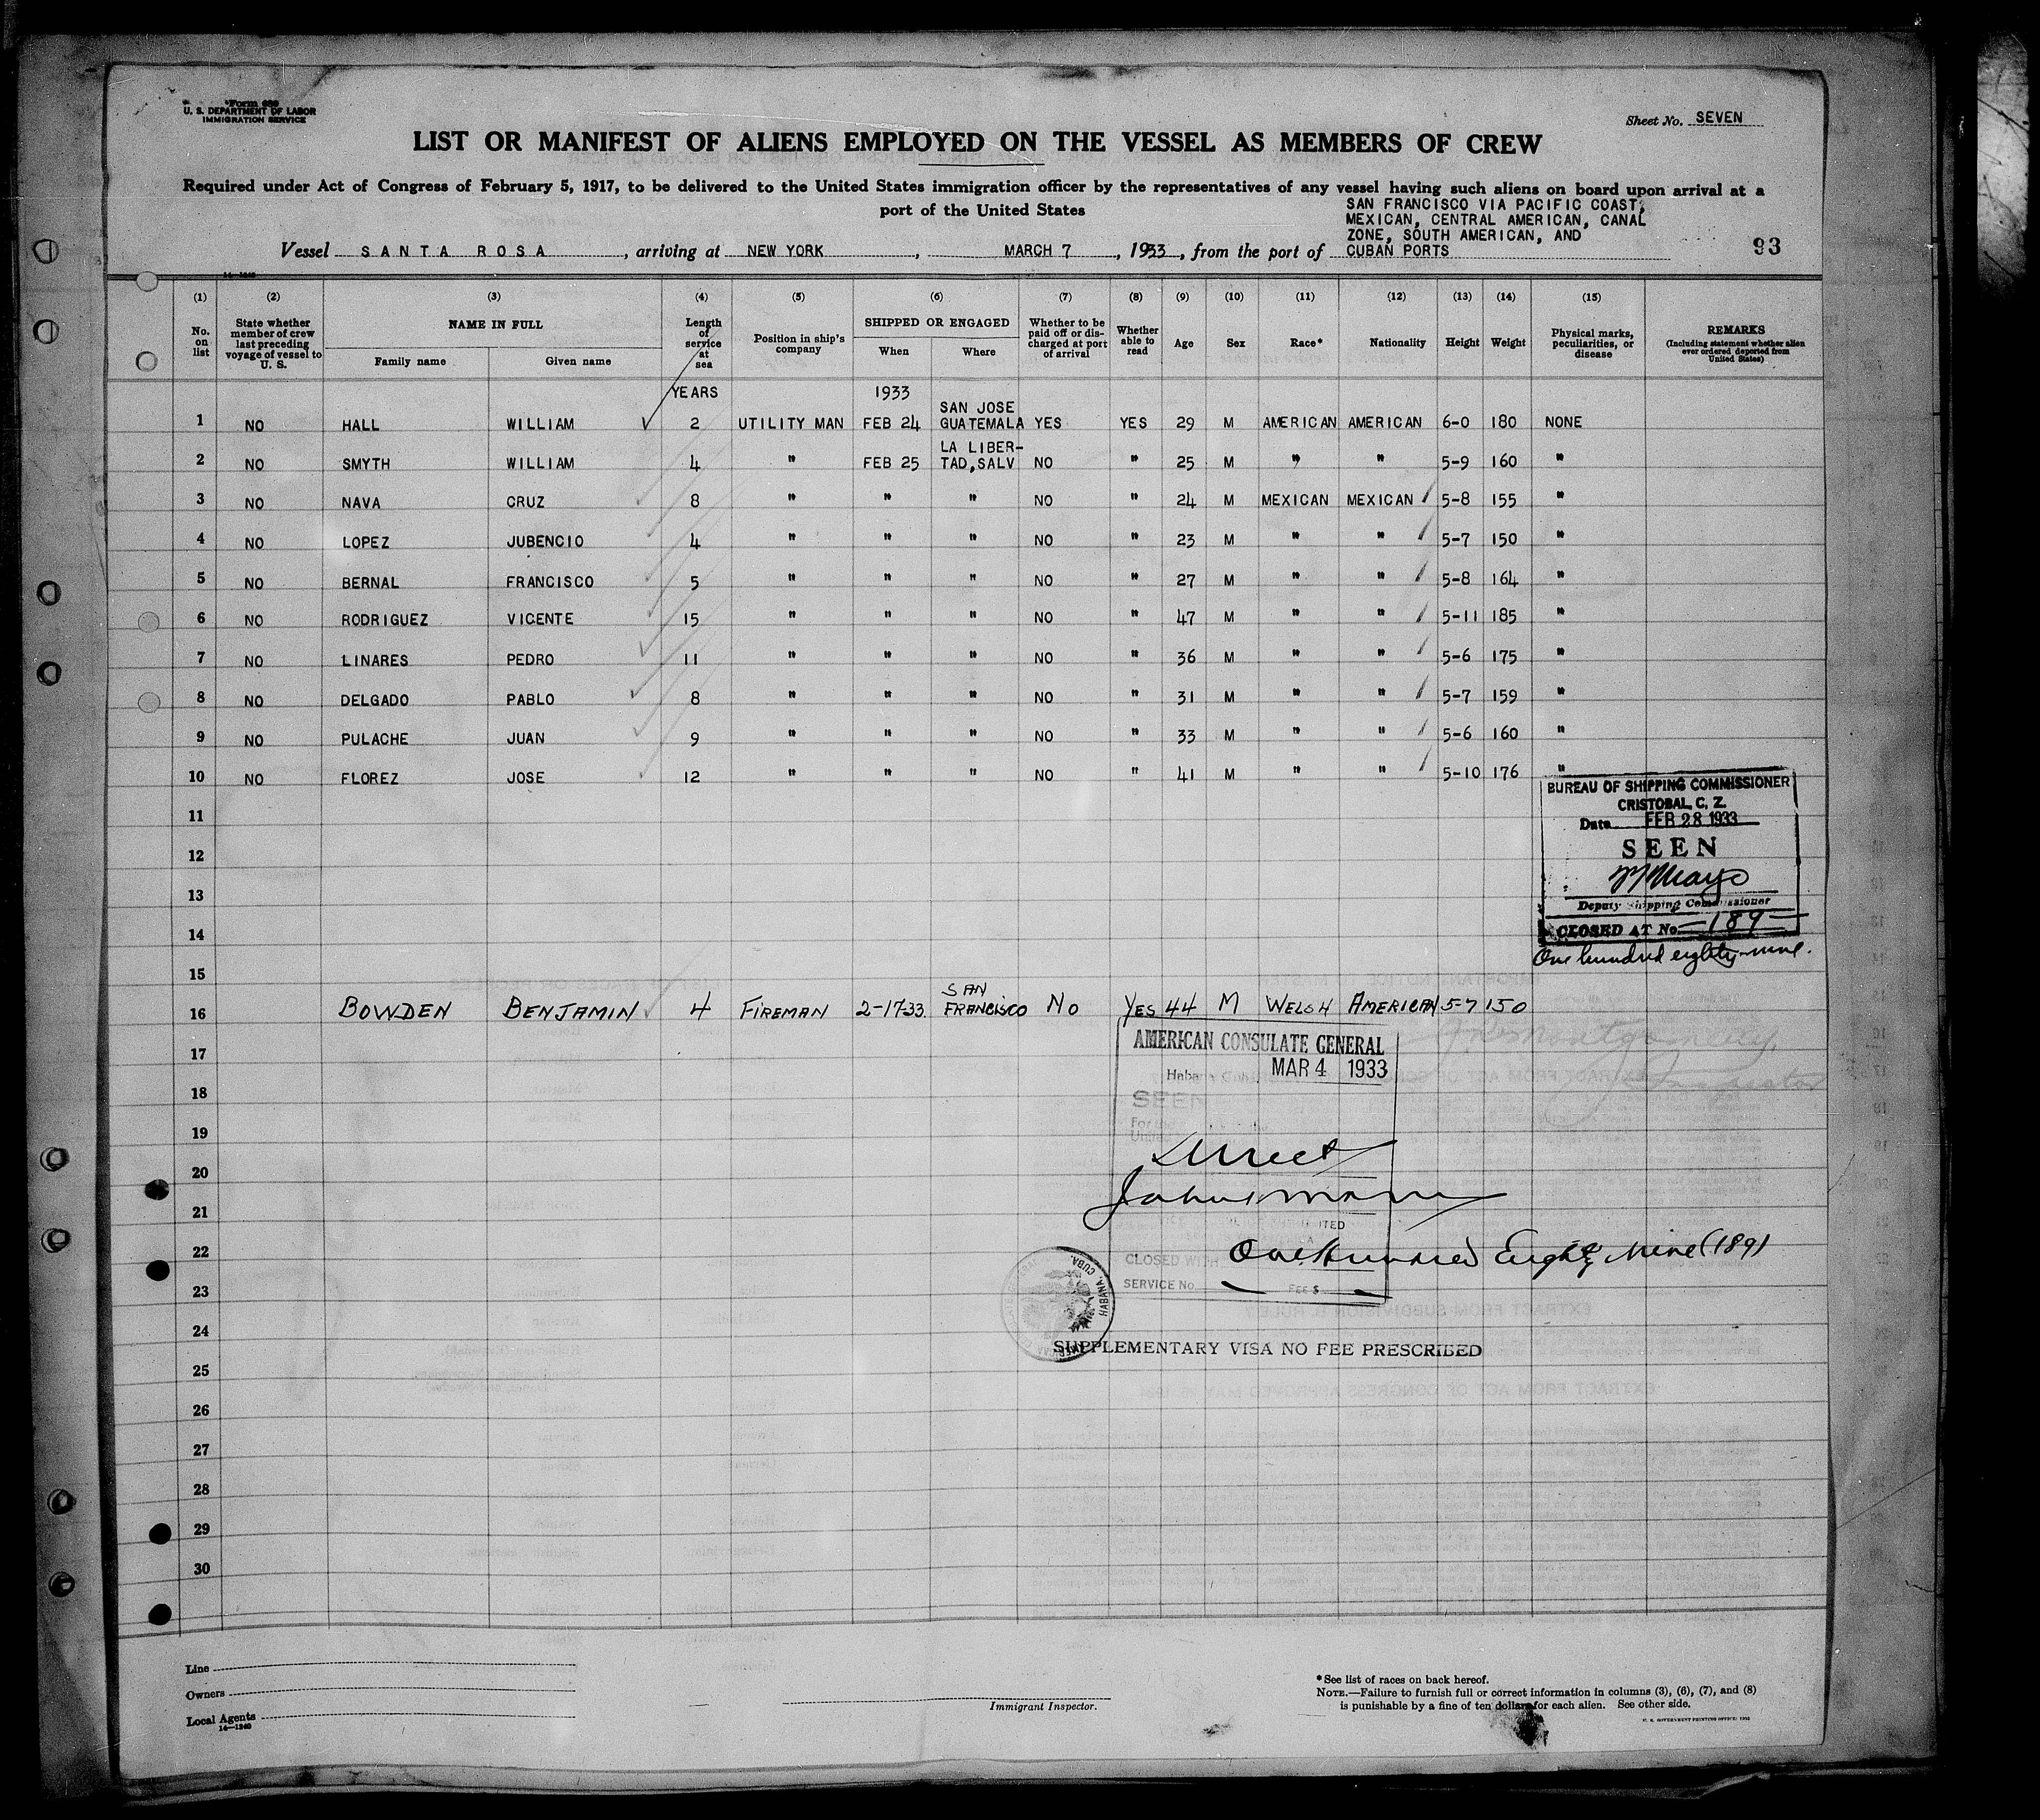 Form 689
U. S. DEPARTMENT OF LABOR
IMMIGRATION SERVICE
Sheet No. SEVEN
LIST OR MANIFEST OF ALIENS EMPLOYED ON THE VESSEL AS MEMBERS OF CREW
Required under Act of Congress of February 5, 1917, to be delivered to the United States immigration officer by the representatives of any vessel having such aliens on board upon arrival at a
port of the United States
SAN FRANCISCO VIA PACIFIC COAST,
MEXICAN, CENTRAL AMERICAN, CANAL
ZONE, SOUTH AMERICAN, AND
Vessel SANTA ROSA, arriving at NEW YORK, MARCH 7, 1933, from the port of CUBAN PORTS
93
14-1240
(1) (2) (3) (4) (5) (6) (7) (8) (9) (10) (11) (12) (13) (14) (15)
No. on list
State whether member of crew last preceding voyage of vessel to U. S.
NAME IN FULL
Family name
Given name
Length of service at sea
Position in ship's company
SHIPPED OR ENGAGED
When
Where
Whether to be paid off or discharged at port of arrival
Whether able to read
Age
Sex
Race*
Nationality
Height
Weight
Physical marks, peculiarities, or disease
REMARKS
(Including statement whether alien ever ordered deported from United States)
YEARS 1933
1 NO HALL WILLIAM 2 UTILITY MAN FEB 24 SAN JOSE GUATEMALA YES YES 29 M AMERICAN AMERICAN 6-0 180 NONE
2 NO SMYTH WILLIAM 4 " FEB 25 LA LIBER- TAD,SALV NO " 25 M " " 5-9 160 "
3 NO NAVA CRUZ 8 " " " NO " 24 M MEXICAN MEXICAN 5-8 155 "
4 NO LOPEZ JUBENCIO 4 " " " NO " 23 M " " 5-7 150 "
5 NO BERNAL FRANCISCO 5 " " " NO " 27 M " " 5-8 164 "
6 NO RODRIGUEZ VICENTE 15 " " " NO " 47 M " " 5-11 185 "
7 NO LINARES PEDRO 11 " " " NO " 36 M " " 5-6 175 "
8 NO DELGADO PABLO 8 " " " NO " 31 M " " 5-7 159 "
9 NO PULACHE JUAN 9 " " " NO " 33 M " " 5-6 160 "
10 NO FLOREZ JOSE 12 " " " NO " 41 M " " 5-10 176 "
BUREAU OF SHIPPING COMMISSIONER
CRISTOBAL, C. Z.
Date FEB 28 1933
SEEN
Deputy Shipping Commissioner
CLOSED AT No. 189
One hundred eighty-nine.
11
12
13
14
15
16 BOWDEN BENJAMIN 4 FIREMAN 2-17-33. SAN FRANCISCO NO YES 44 M WELSH AMERICAN 5-7 150
AMERICAN CONSULATE GENERAL
Habana, Cuba MAR 4 1933
SEEN
17
18
19
20
21
22
One Hundred Eighty Nine (189)
CLOSED WITH
SERVICE No. FEE $
HABANA, CUBA.
SUPPLEMENTARY VISA NO FEE PRESCRIBED
23
24
25
26
27
28
29
30
Line
Owners
Local Agents
14-1240
Immigrant Inspector.
*See list of races on back hereof.
NOTE.—Failure to furnish full or correct information in columns (3), (6), (7), and (8)
is punishable by a fine of ten dollars for each alien. See other side.
U. S. GOVERNMENT PRINTING OFFICE: 1932